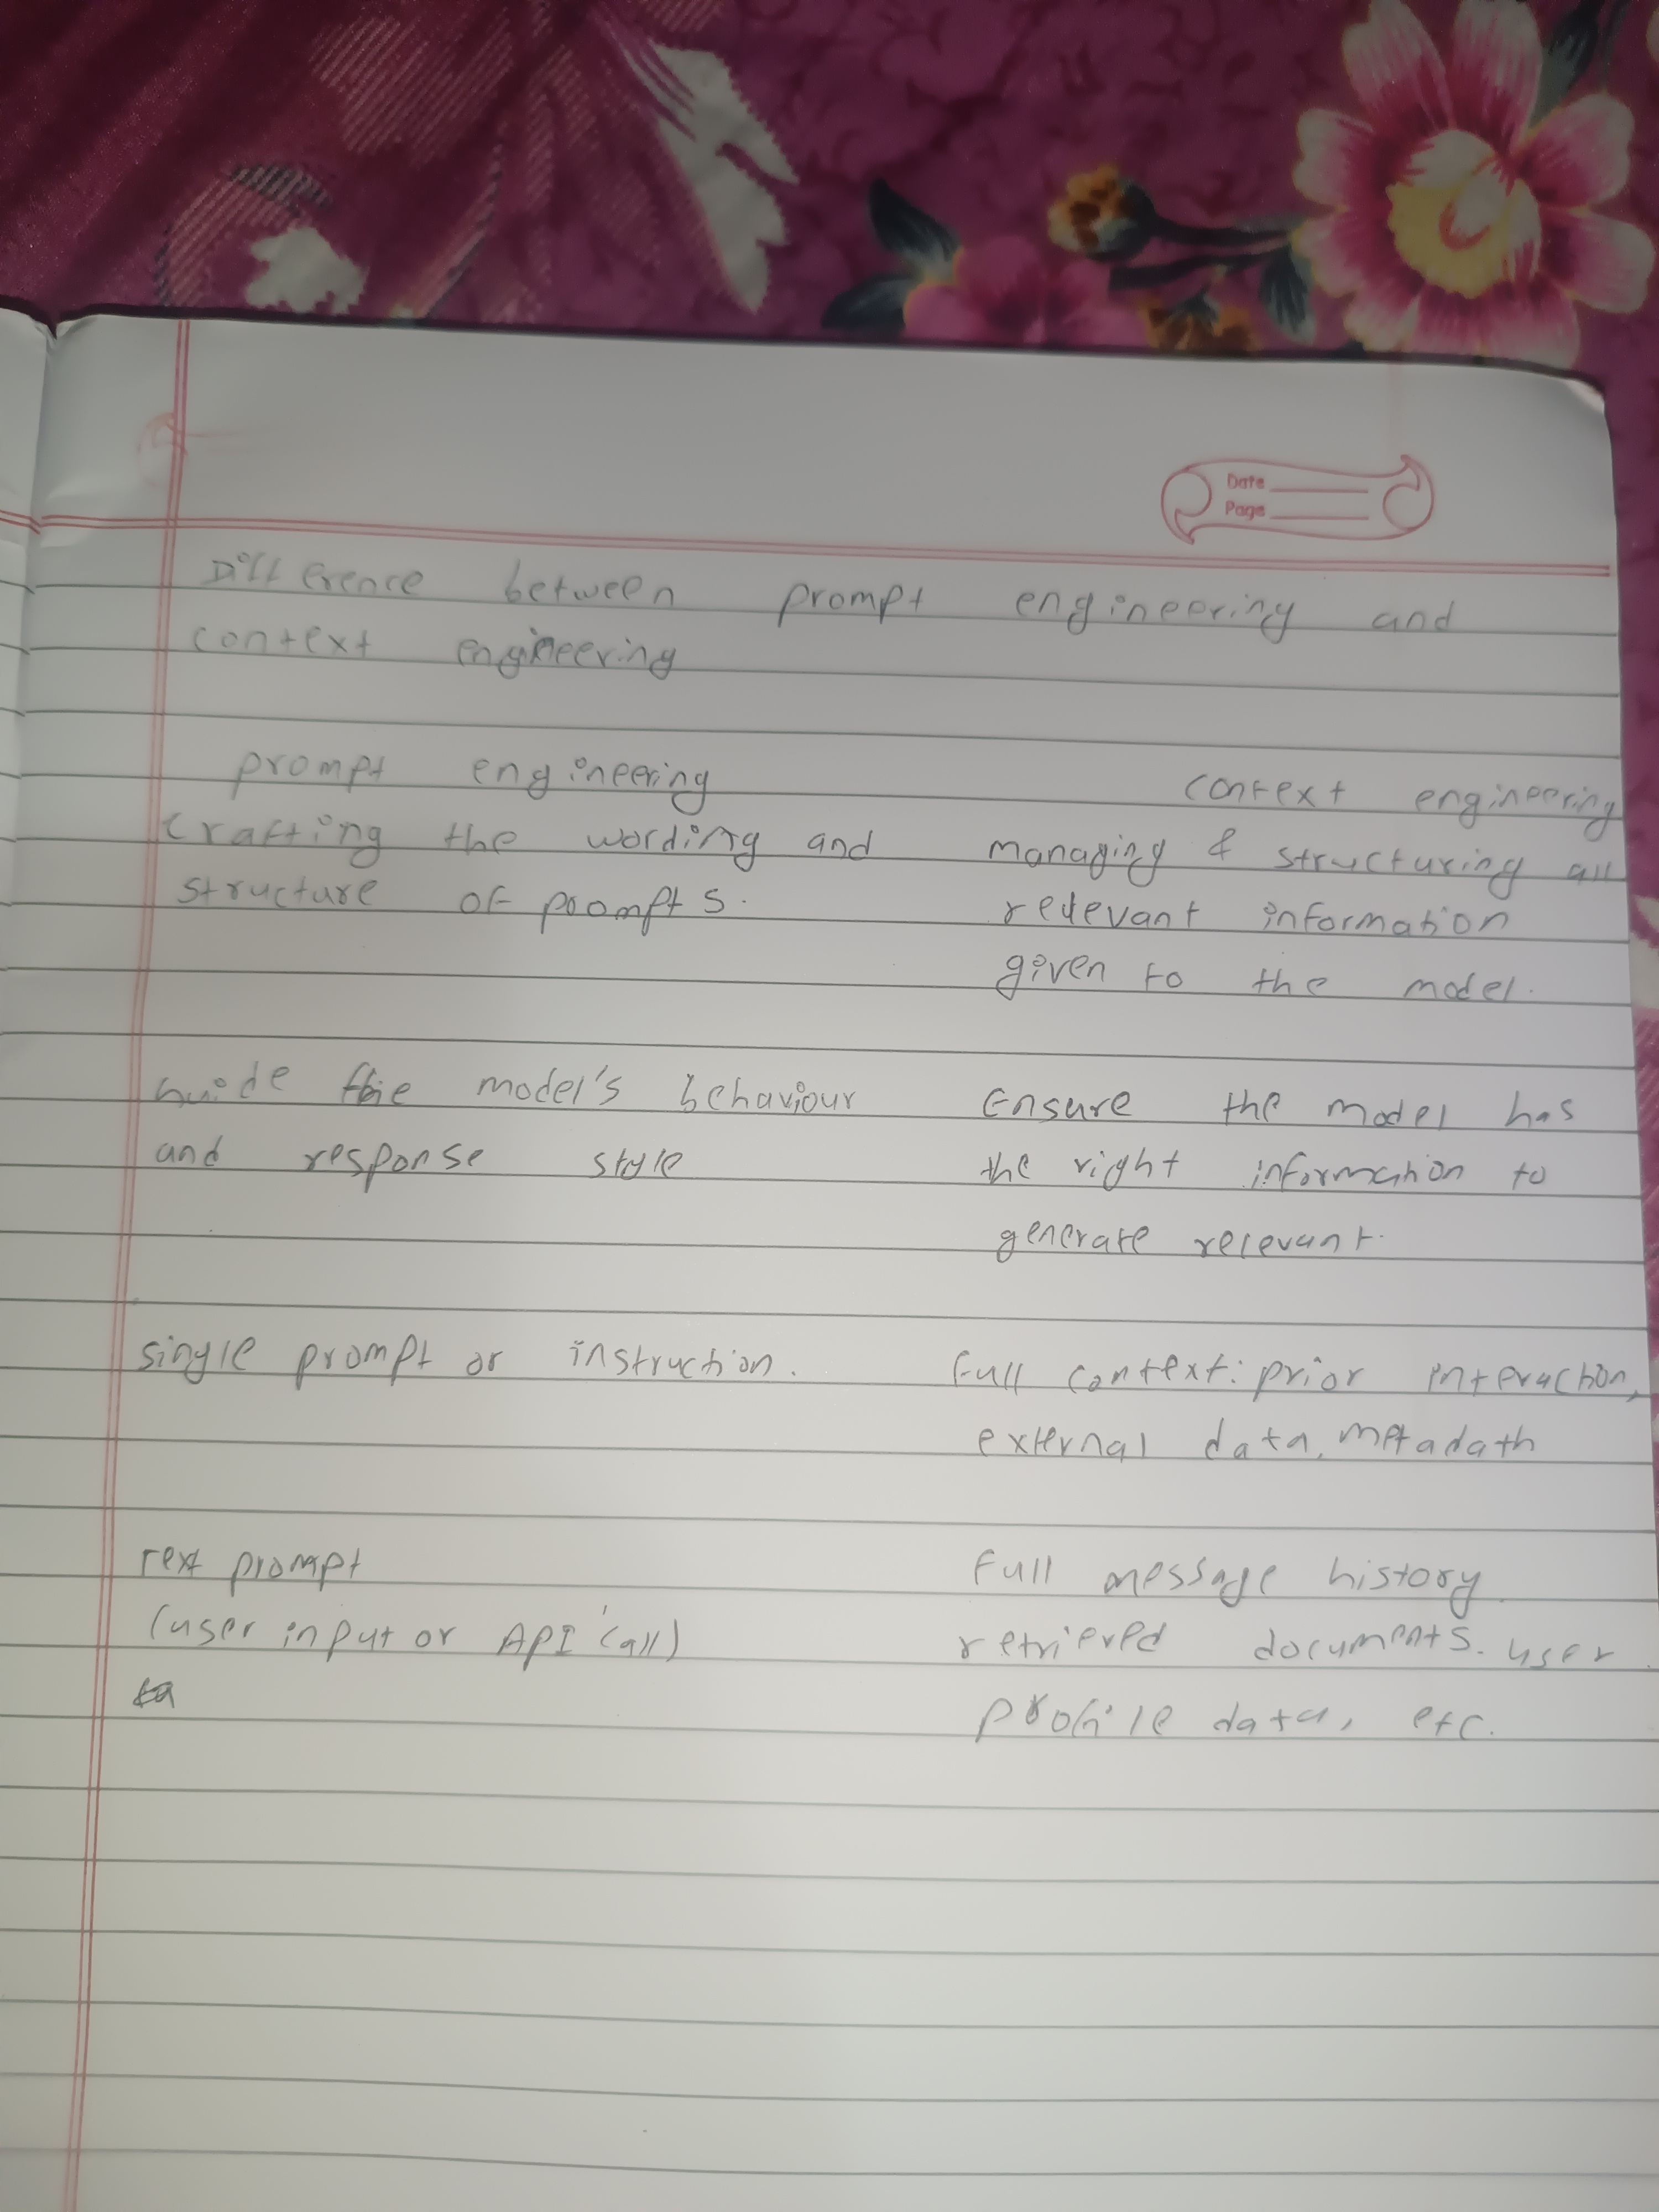 Date
Page
Difference between prompt engineering and
context engineering
prompt engineering
crafting the wording and
structure of prompts.
context engineering
managing & structuring all
relevant information
given to the model.
Guide the model's behaviour
and response style
Ensure the model has
the right information to
generate relevant.
single prompt or instruction.
Full context: prior interaction,
external data, metadath
Text prompt
(user input or API call)
Full message history
retrieved documents. user
profile data, etc.